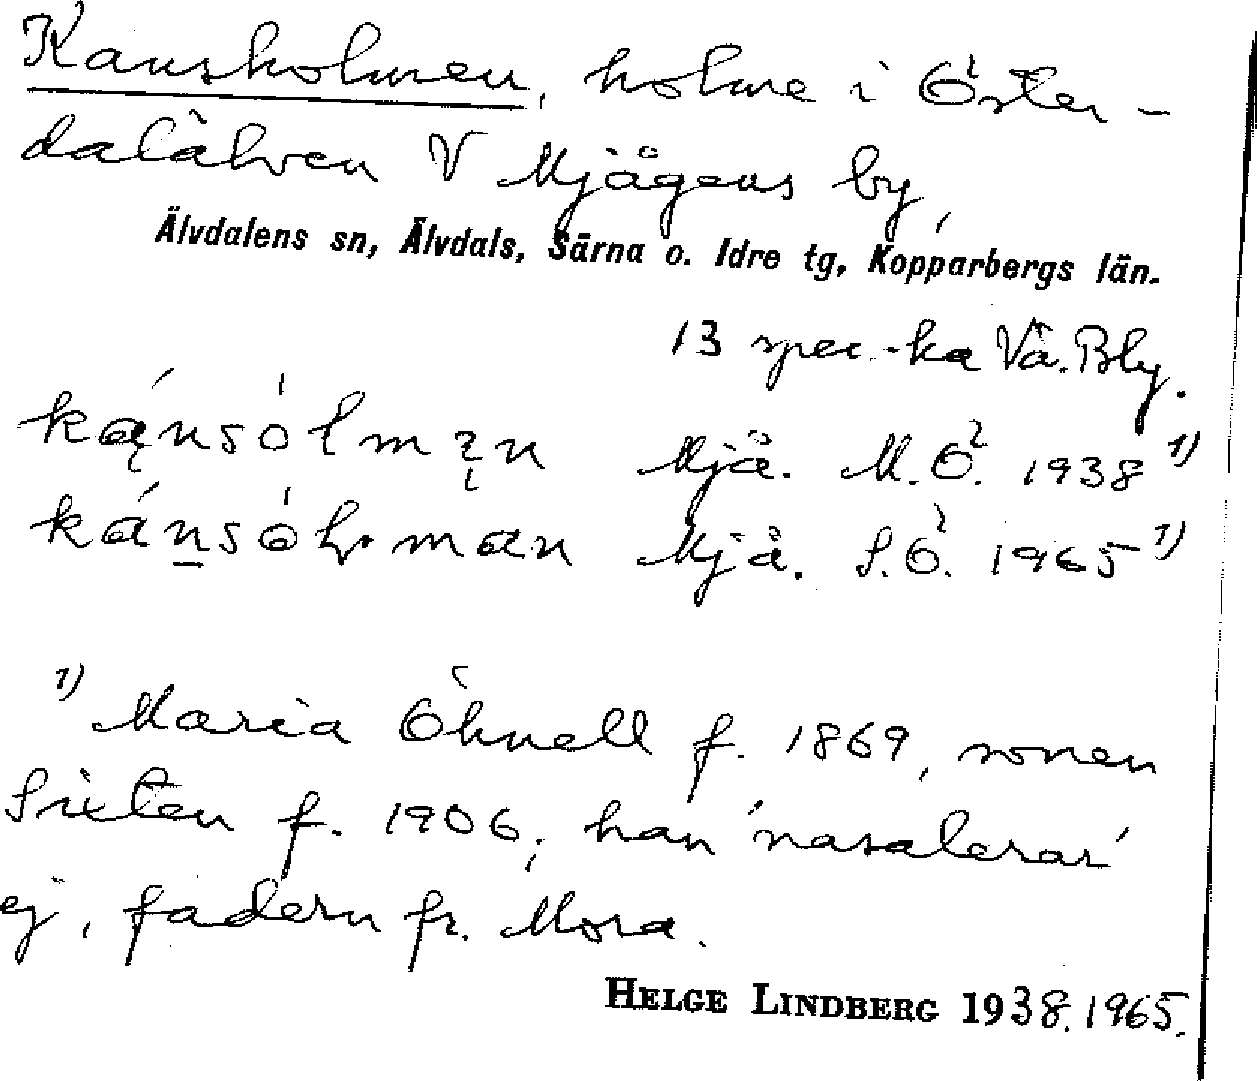 Kansholmen, holme i Öster-
dalälven V Mjågens by,
Älvdalens sn, Älvdals, Särna o. Idre tg, Kopparbergs län.
13 spec.-ka Vå. Bly.
Mjå. M.Ö. 1938 1)
Mjå. S.Ö. 1965 1)
1) Maria Öhnell f. 1869, sonen
Sixten f. 1906; han 'nasalerar'
ej, fadern fr. Mora.
HELGE LINDBERG 1938. 1965.